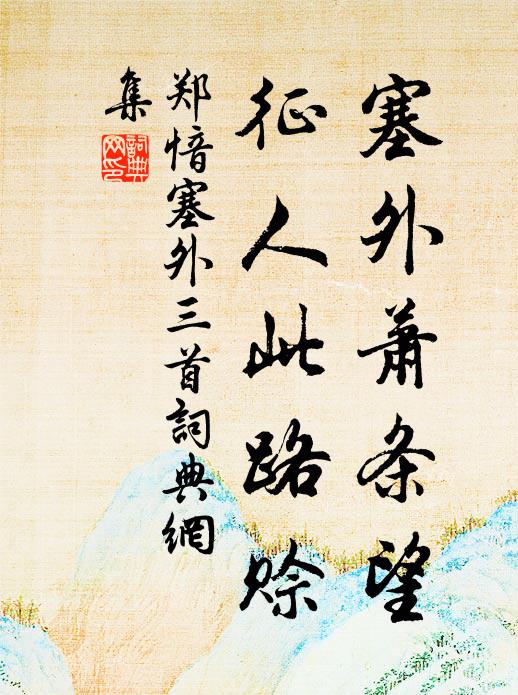 塞外萧条望
征人此路赊
郑愔塞外三首詞典網
集
詞典
网印